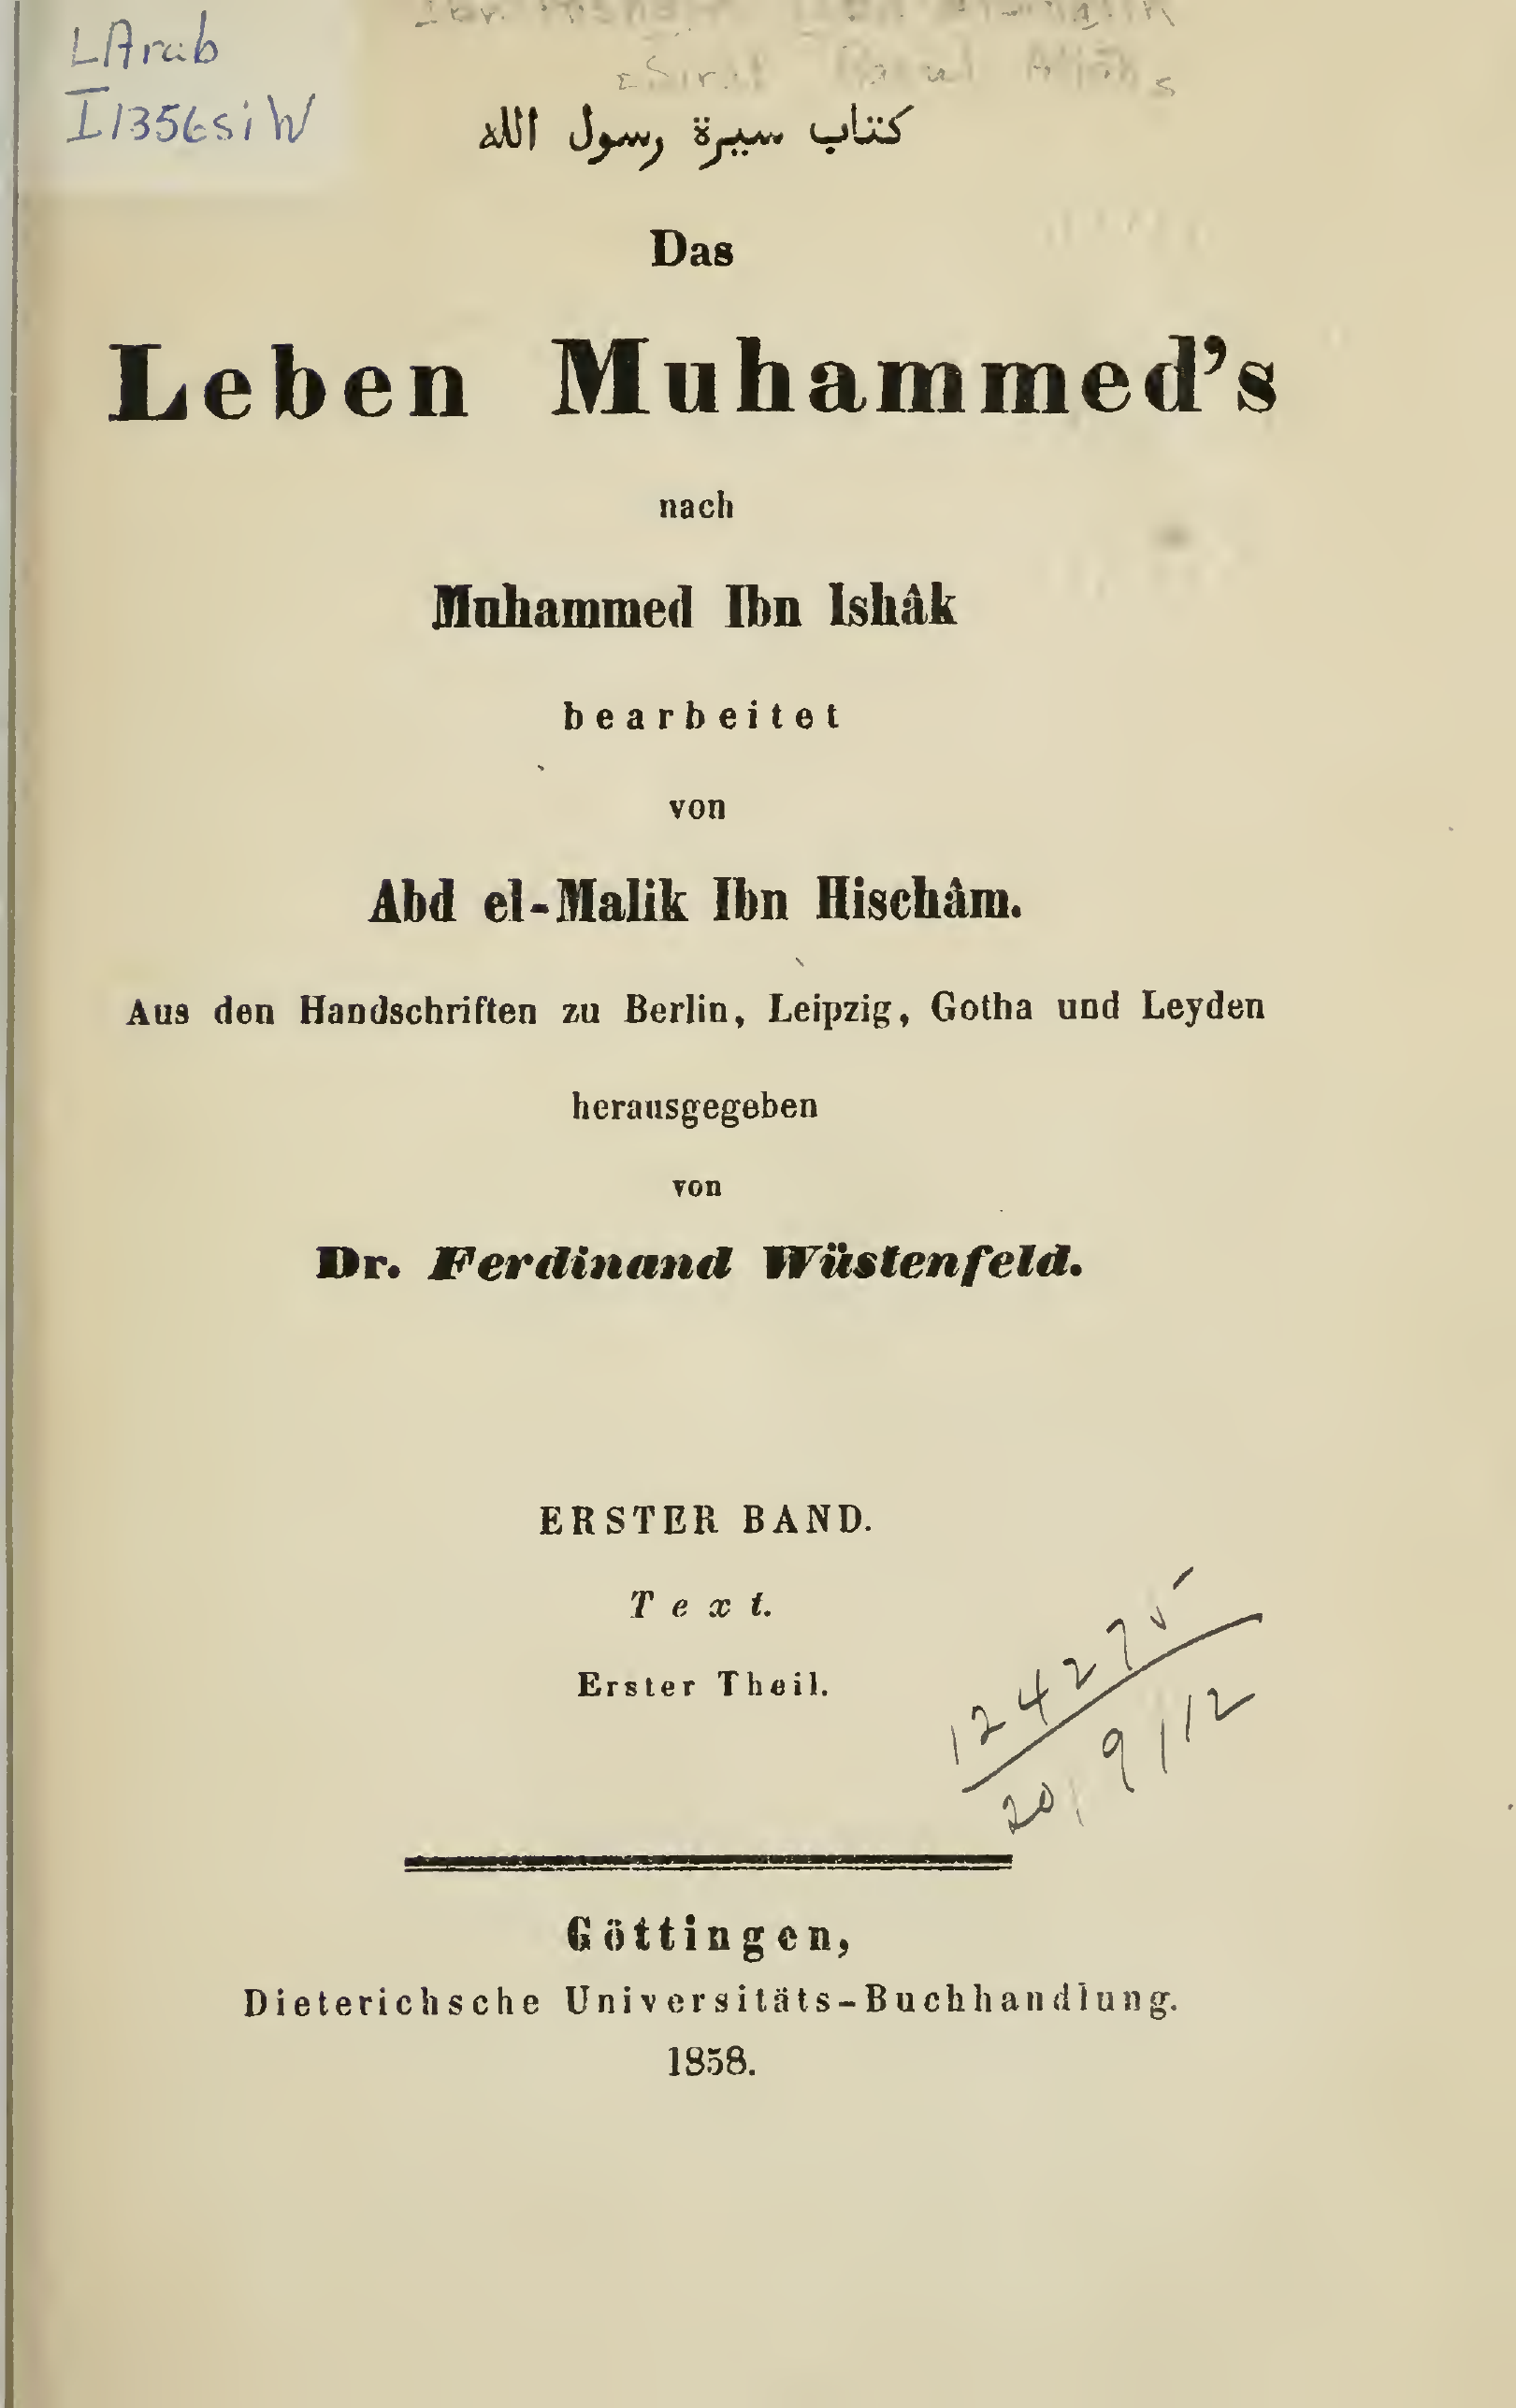 LArab
I1356siW
كتاب سيرة رسول الله
Das
Leben Muhammed's
nach
Muhammed Ibn Ishâk
bearbeitet
von
Abd el-Malik Ibn Hischâm.
Aus den Handschriften zu Berlin, Leipzig, Gotha und Leyden
herausgegeben
von
Dr. Ferdinand Wüstenfeld.
ERSTER BAND.
Text.
Erster Theil.
124275
20/9/12
Göttingen,
Dieterichsche Universitäts-Buchhandlung.
1858.